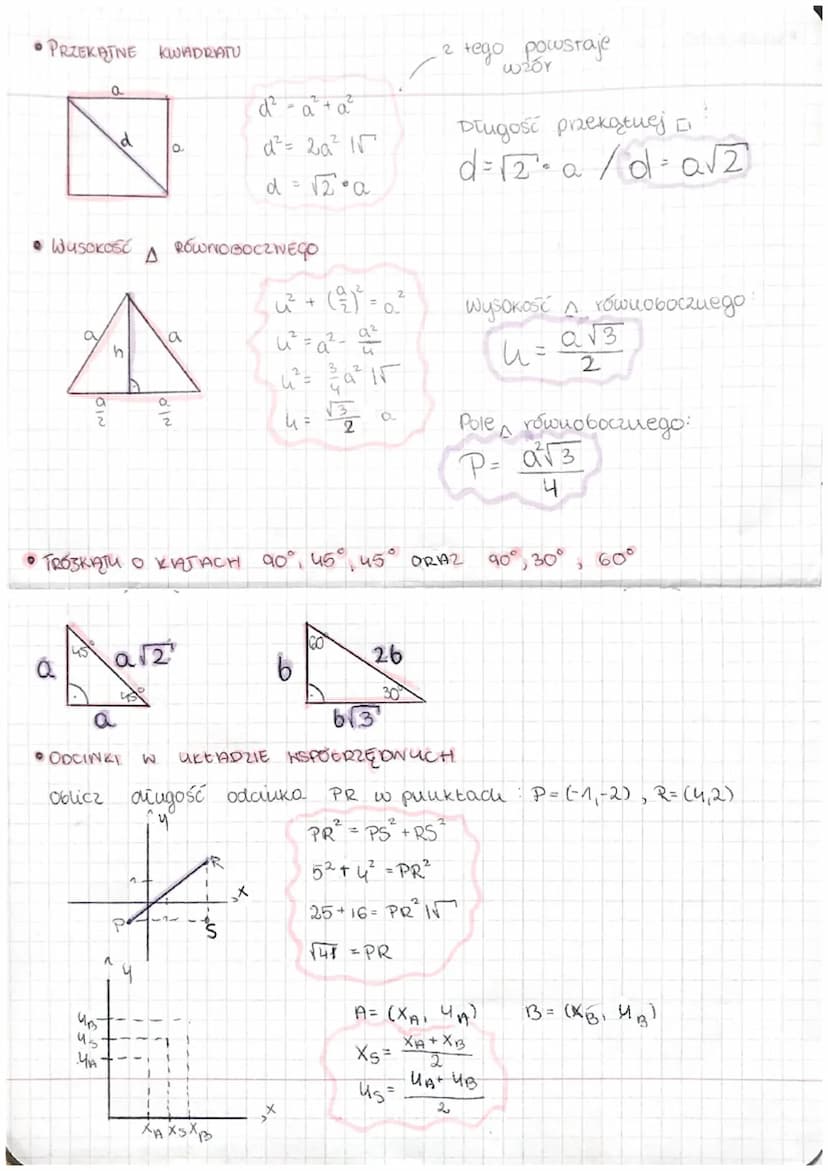 • PRZEKĄTNE KWADRATU
z tego powstaje
wzór
a
d
a
d² = a² + a²
d² = 2a² |√
d = √2 • a
Długość przekątnej □ :
d = √2 • a / d = a√2
• WYSOKOŚĆ △ RÓWNOBOCZNEGO
a
h
a
a/2
a/2
h² + (a/2)² = a²
h² = a² - a²/4
h² = 3/4 a² |√
h = √3/2 a
Wysokość △ równobocznego:
h = a√3/2
Pole △ równobocznego:
P = a²√3/4
• TRÓJKĄTY O KĄTACH 90°, 45°, 45° ORAZ 90°, 30°, 60°
a
45°
a√2
45°
a
b
60°
2b
30°
b√3
• ODCINKI W UKŁADZIE WSPÓŁRZĘDNYCH
Oblicz długość odcinka PR w punktach : P = (-1,-2), R = (4,2)
y
R
1
x
P
1
S
PR² = PS² + RS²
5² + 4² = PR²
25 + 16 = PR² |√
√41 = PR
y
yB
yS
yA
xA xS xB
x
A = (xA, yA) B = (xB, yB)
xS = xA + xB/2
yS = yA + yB/2